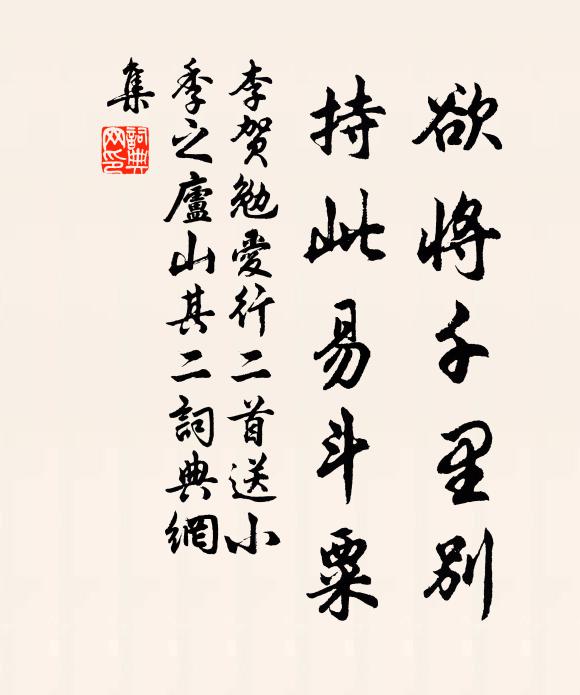 欲將千里別
持此易斗粟
李賀勉愛行二首送小
季之廬山其二詞典網
集
詞典
网印